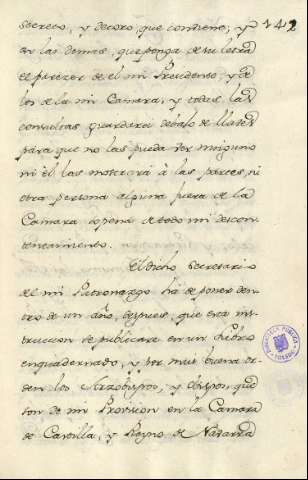 142
secreto, y decoro, que contiene; y
en las demas, que ponga de su letra
el parezer de el mi Presidente, y de
los de la mi Camara, y todas las
consultas guardará debajo de llabe
para que no las pueda ver ninguno
ni el las mostrará à las partes, ni
otra persona alguna fuera de la
Camara so pena de todo mi descon-
tentamiento.
El dicho Secretario
del mi Patronazgo há de poner den-
tro de un año, despues, que esta ins-
truccion se publicare en un Libro
enquadernado, y por mui buena or-
den los Arzobispos, y Obispos, que
son de mi Provision en la Camara
de Castilla, y Reyno de Navarra
BIBLIOTECA PUBLICA
TOLEDO